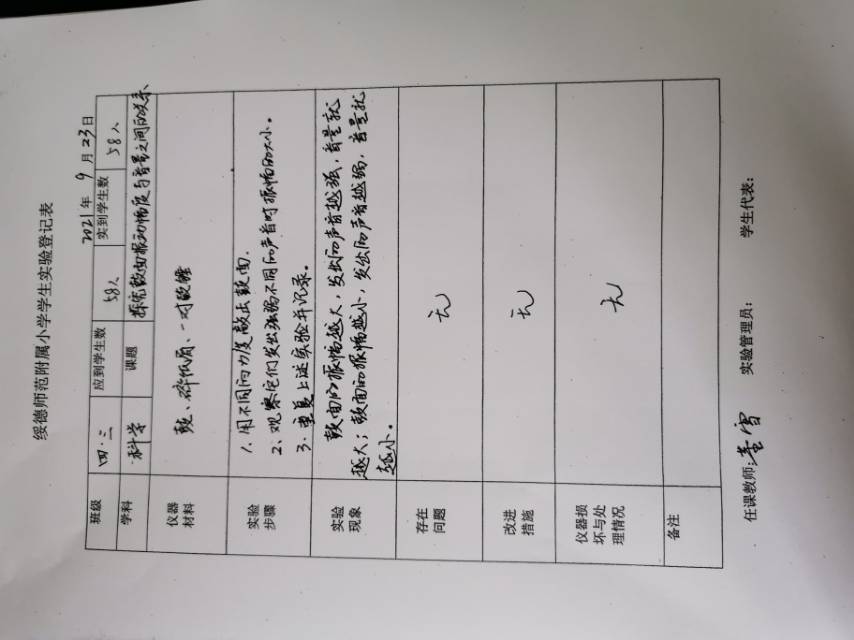 绥德师范附属小学学生实验登记表
2021年 9 月 23 日
班级 四.三 应到学生数 58人 实到学生数 58人
学科 科学 课题 探究鼓面振动幅度与音量之间的关系
仪器材料 鼓、碎纸屑、一对鼓锤
实验步骤 1. 用不同的力度敲击鼓面.
2、观察它们发出强弱不同的声音时振幅的大小。
3. 重复上述实验并记录。
实验现象 鼓面的振幅越大,发出的声音越强,音量就
越大;鼓面的振幅越小,发出的声音越弱,音量就
越小。
存在问题 无
改进措施 无
仪器损坏与处理情况 无
备注
任课教师: 李雪 实验管理员: 学生代表: